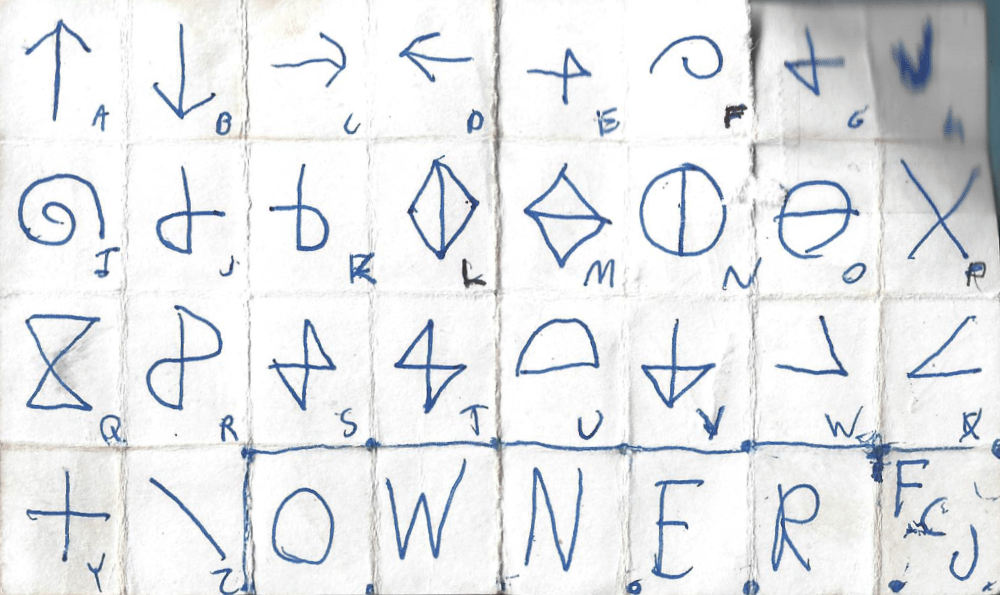 A B C D E F G H
I J K L M N O P
Q R S T U V W X
Y Z O W N E R F C J